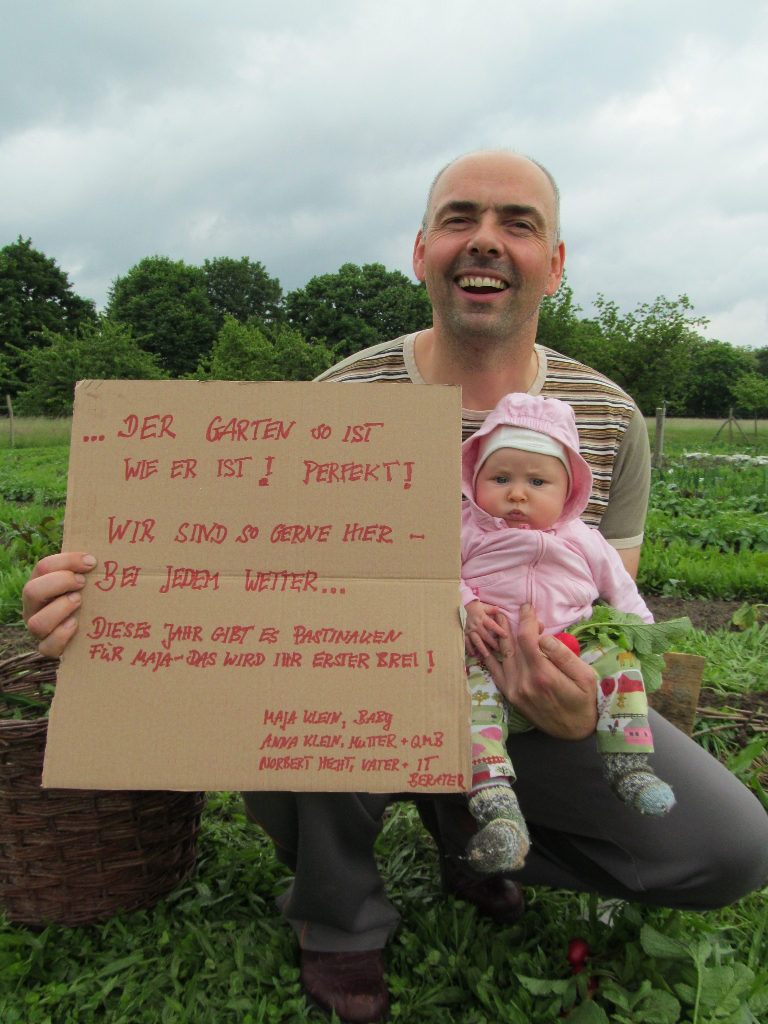 ... DER GARTEN SO IST
WIE ER IST! PERFEKT!
WIR SIND SO GERNE HIER –
BEI JEDEM WETTER...
DIESES JAHR GIBT ES PASTINAKEN
FÜR MAJA – DAS WIRD IHR ERSTER BREI!
MAJA KLEIN, BABY
ANNA KLEIN, MUTTER + QMB
NORBERT HECHT, VATER + IT
BERATER